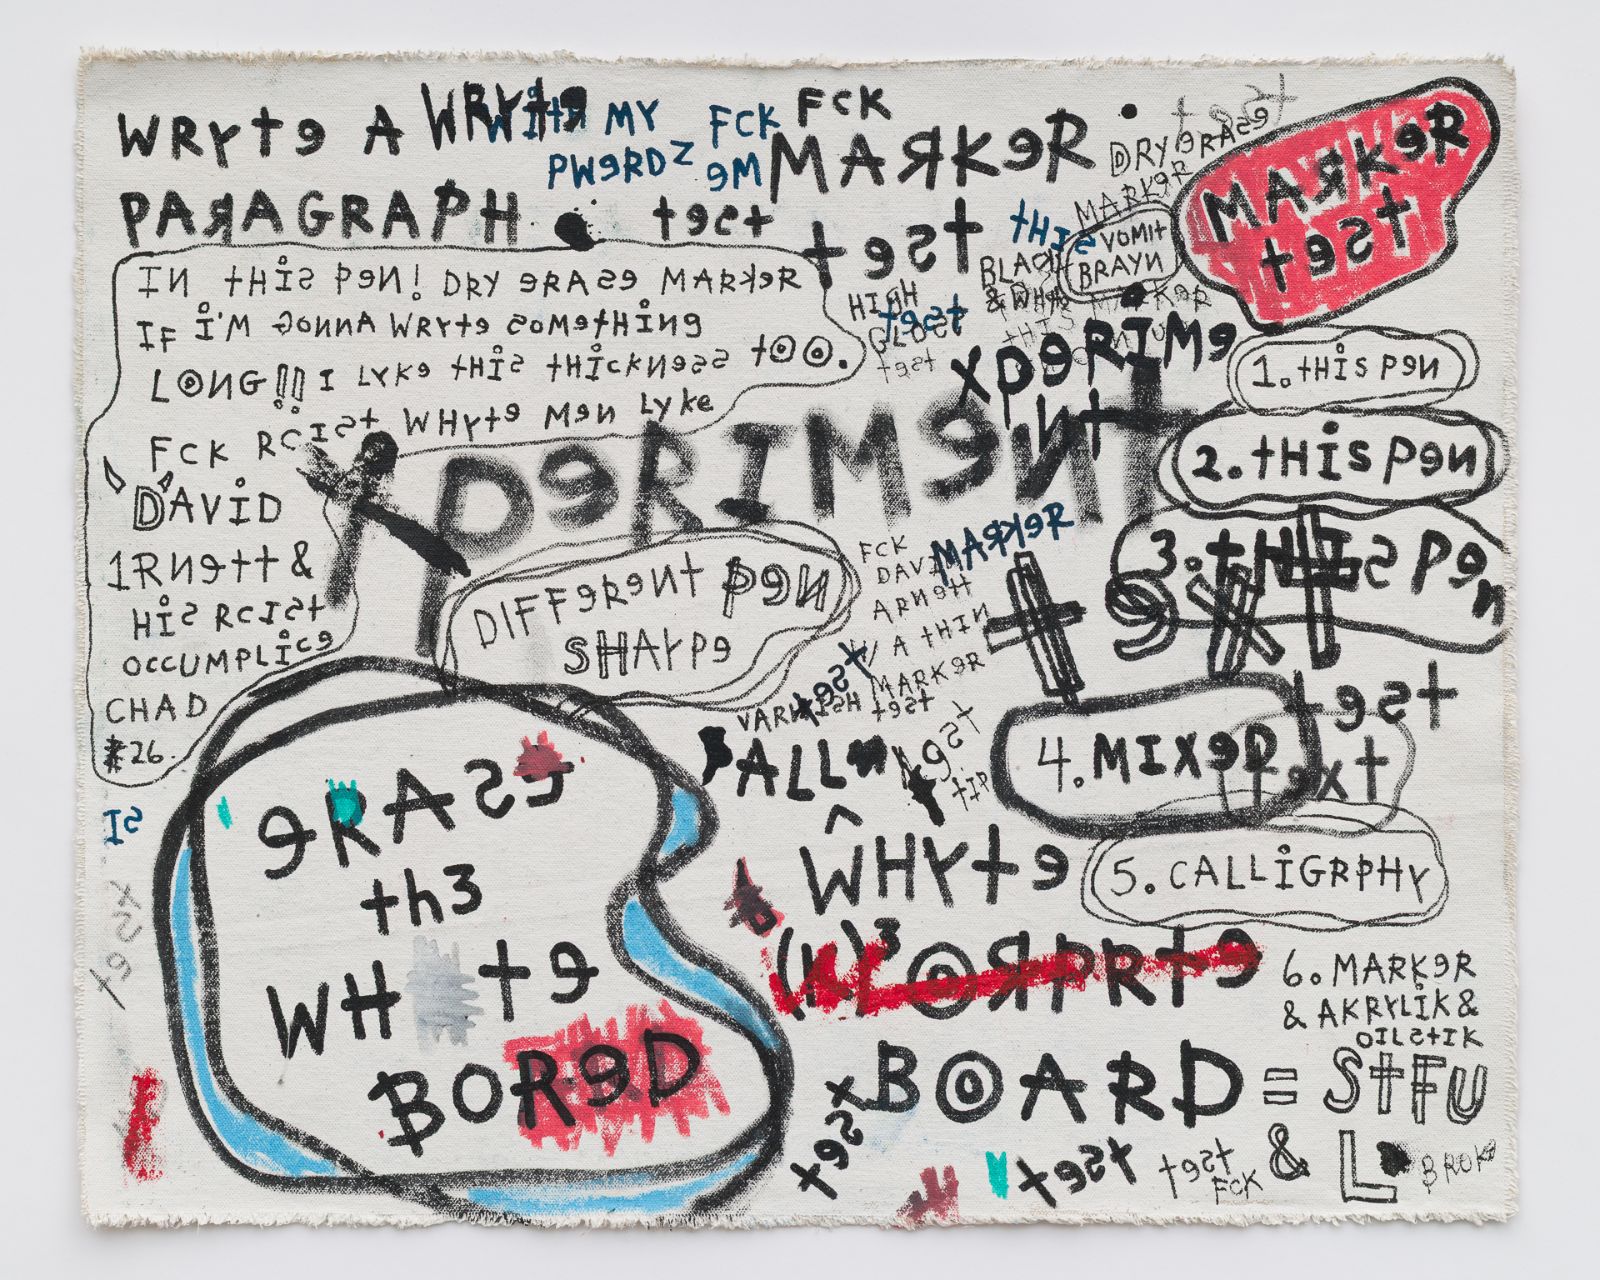 WRYte A WRYte
PARAGRAPH
WitH MY
PWeRDZ
FCK
eM
FCK
MARKeR
test
test
DRY eRASe
MARKeR
tHIS
VOMIt
BRAYN
MARKeR
test
IN tHiS PeN! DRY eRASe MARKeR
IF i'M GONNA WRYte SOMetHiNG
LONG!! I LYKe tHiS tHiCKNeSS tOO.
FCK RCISt WHYte MeN LYke
DAViD
1RNett &
HiS RCISt
OCCUMPLiCe
CHAD
#26.
HIGH
GLOSS
test
test
BLACK
& WHYt
XPeRIMe
Nt
XPeRIMeNt
1. tHiS PeN
2. tHiS PeN
3. tHIS PeN
text
DIFFeReNt PeN
SHAYPe
FCK
DAViD
ARNett
W/ A tHIN
MARKeR
MARKeR
test
VARNISH test
test
4. MIXeD
test
text
5. CALLiGRPHY
6. MARKeR
& AKRYLiK &
OILStIK
ALL
test
tIP
WHYte
(K)³ORPRte
BOARD = StFU
& L
BROKe
eRASe
th3
WHYte
BOReD
IS
test
test
test
test
FCK